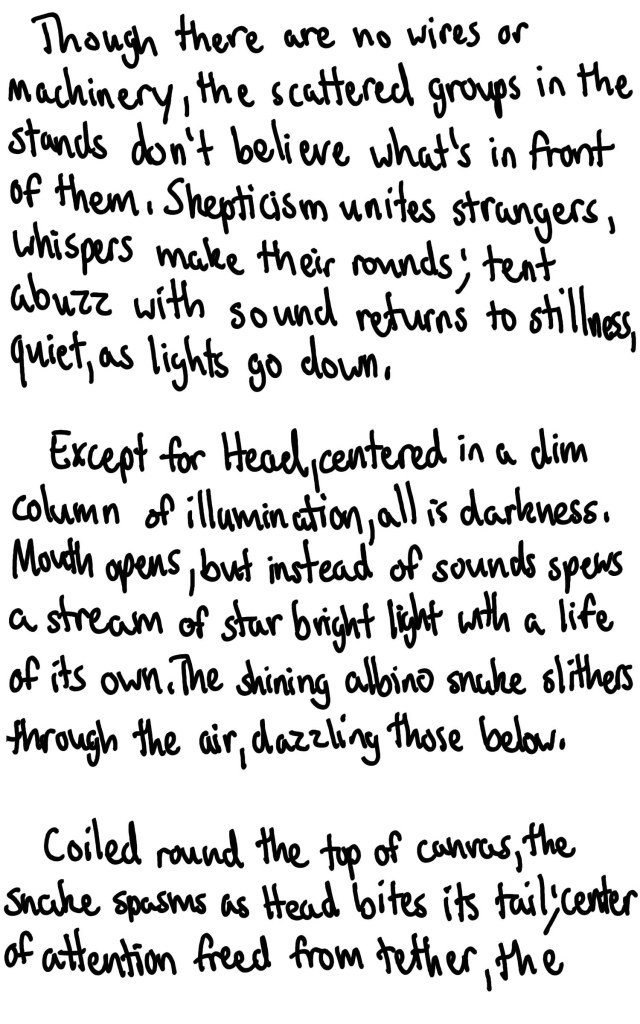 Though there are no wires or
machinery, the scattered groups in the
stands don't believe what's in front
of them. Skepticism unites strangers,
whispers make their rounds; tent
abuzz with sound returns to stillness,
quiet, as lights go down.
Except for Head, centered in a dim
column of illumination, all is darkness.
Mouth opens, but instead of sounds spews
a stream of star bright light with a life
of its own. The shining albino snake slithers
through the air, dazzling those below.
Coiled round the top of canvas, the
snake spasms as Head bites its tail; center
of attention freed from tether, the